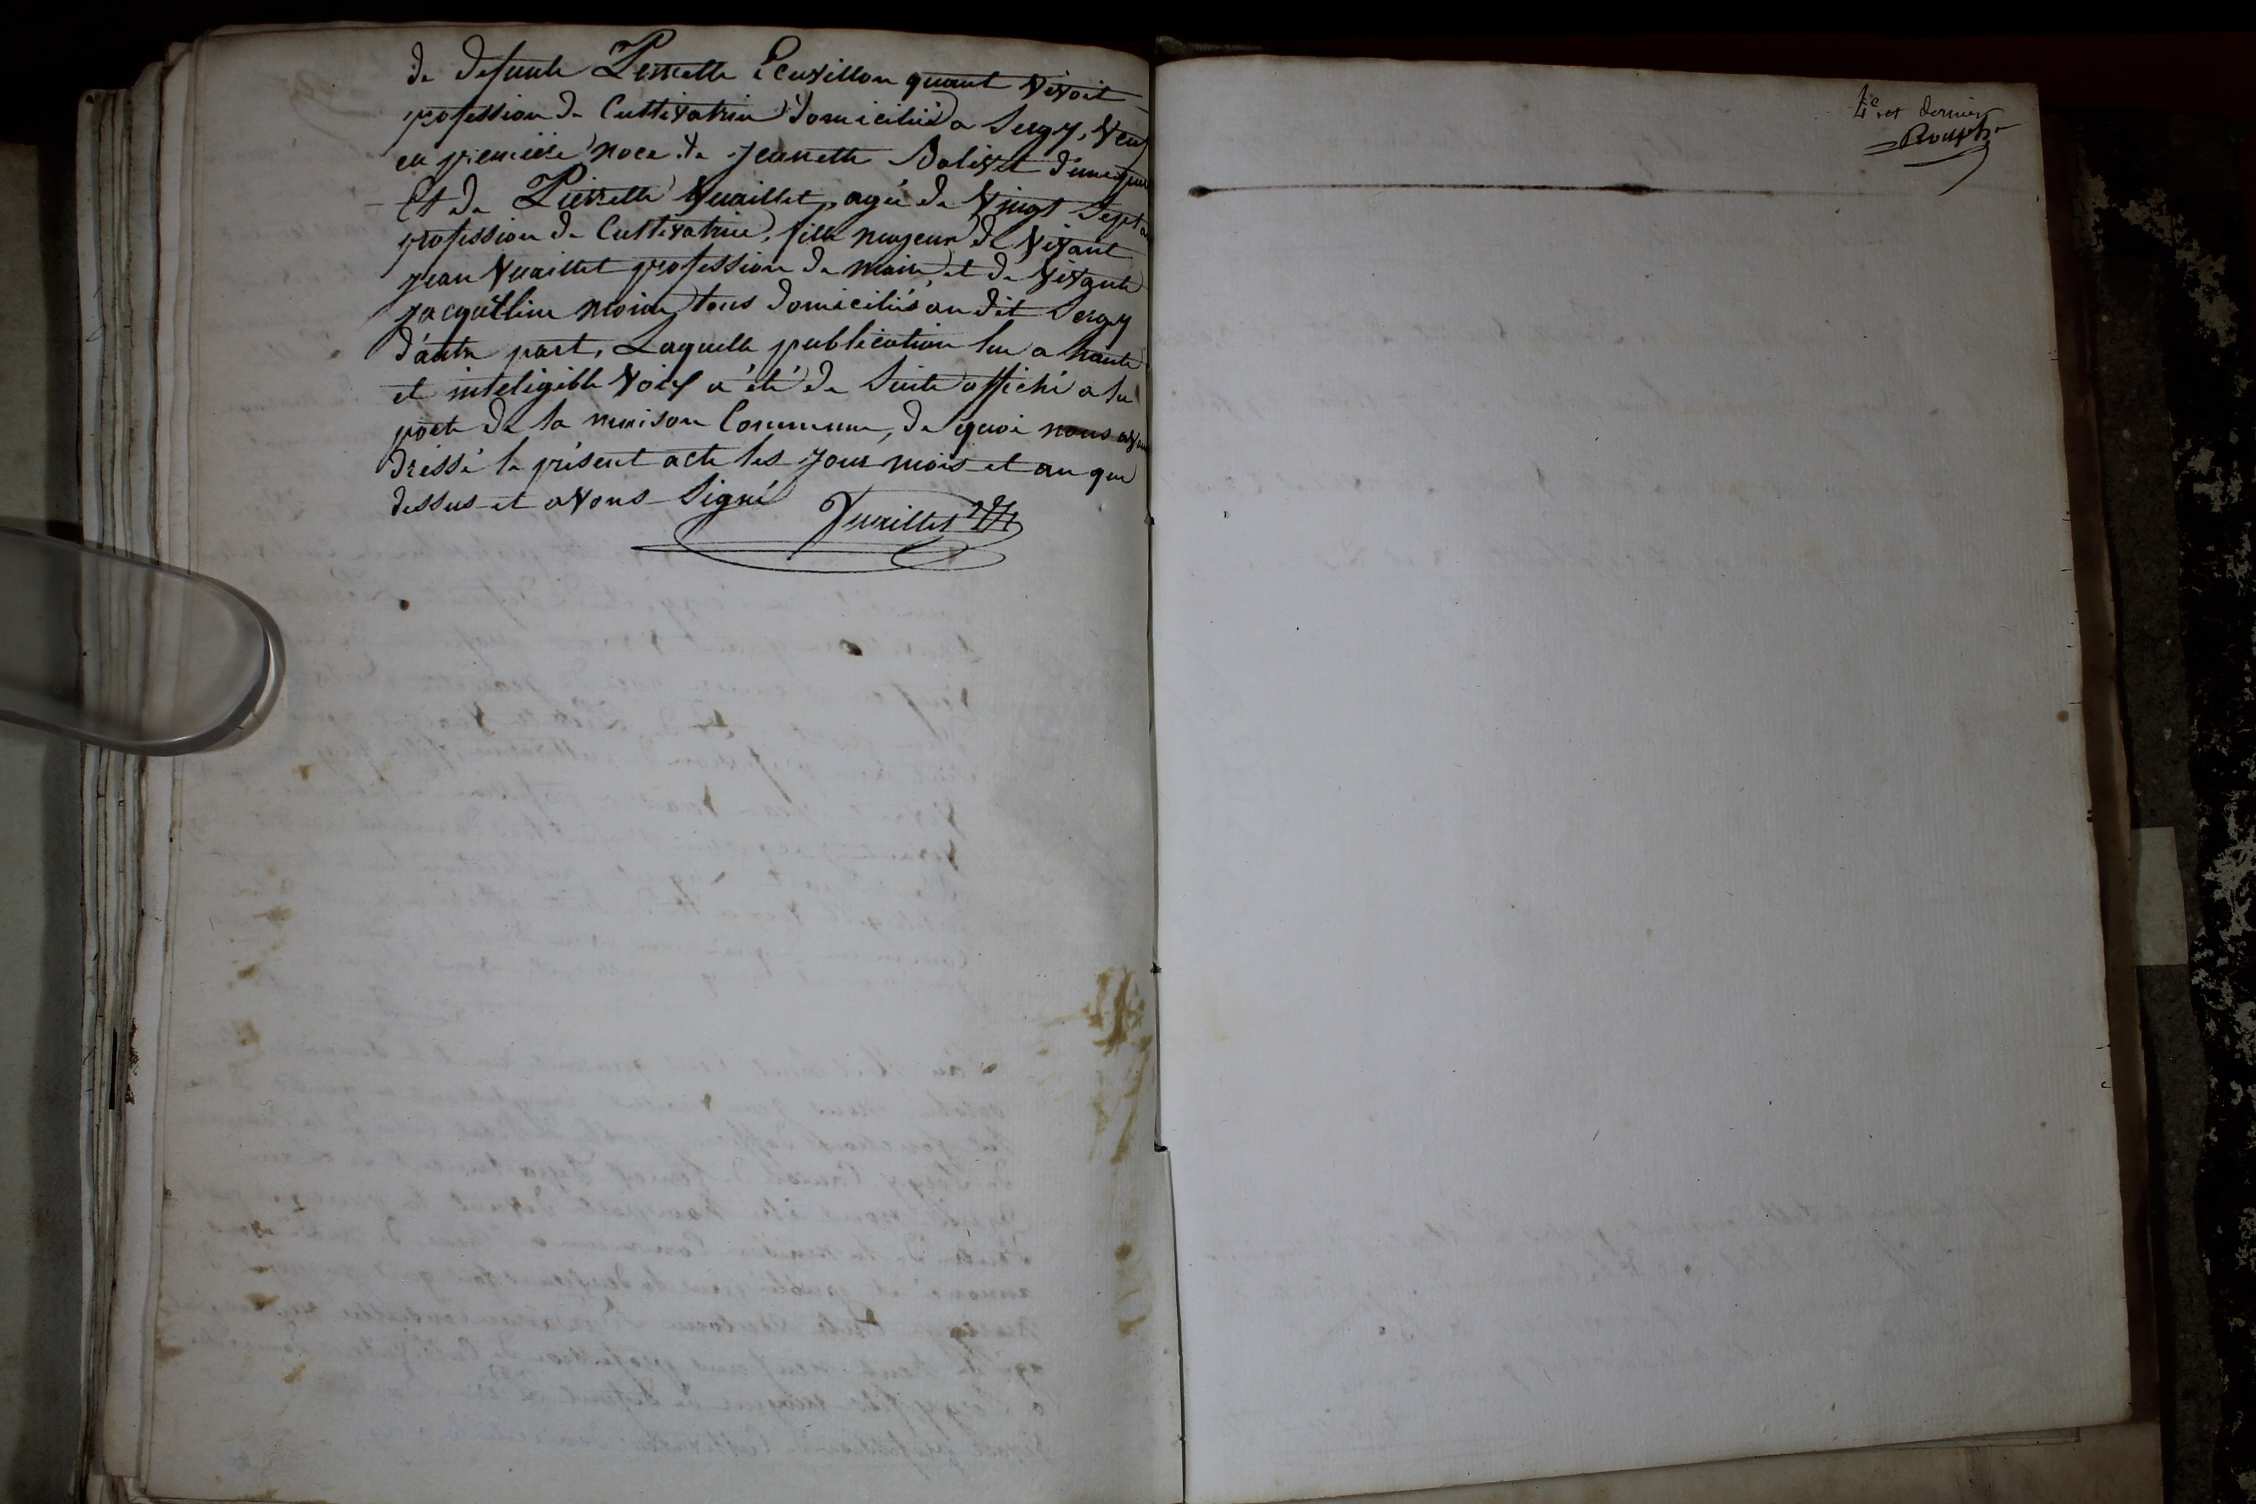 de defunte Pernette Ecuvillon quant vivoit
profession de Cultivatrice domicilié a Sergy, veuf
en première noce de jeanette Balivet d'une part
Et de Pierrette Vuaillet, agé de vingt sept ans
profession de Cultivatrice, fille majeur de vivant
jean Vuaillet profession de maire et de vivante
jacqueline moine tous domiciliés au dit Sergy
d'autre part, Laquelle publication lue a haute
et inteligible voix a été de Suite affiché a la
porte de la maison Commune, de quoi nous avons
dressé le présent acte les jour mois et an que
dessus et avons Signé
Vuaillet
4e et dernier